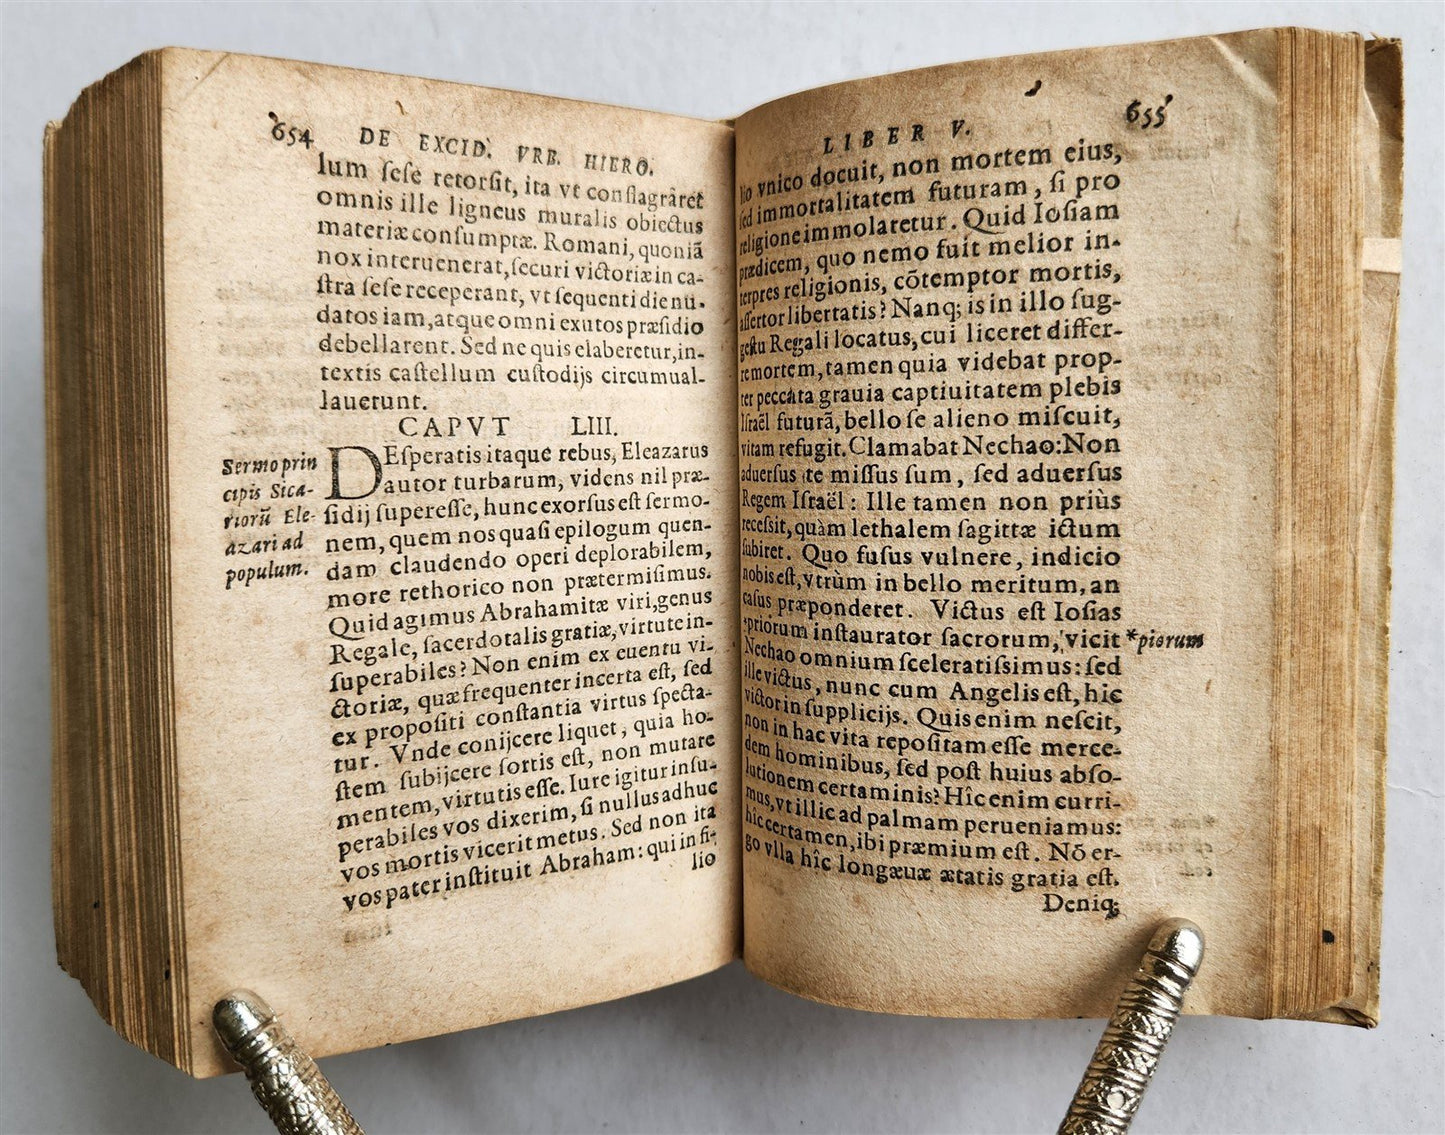 654 DE EXCID. VRB. HIERO.
lum ſeſe retorſit, ita vt conflagrâret
omnis ille ligneus muralis obiectus
materiæ conſumptæ. Romani, quoniã
nox interuenerat, ſecuri victoriæ in ca-
ſtra ſeſe receperant, vt ſequenti die nu.
datos iam, atque omni exutos præſidio
debellarent. Sed ne quis elaberetur, in-
textis caſtellum cuſtodijs circumual-
lauerunt.
CAPVT LIII.
Sermo prin
cipis Sica-
riorũ Ele-
azari ad
populum.
DEſperatis itaque rebus, Eleazarus
autor turbarum, videns nil præ-
ſidij ſupereſſe, hunc exorſus eſt ſermo-
nem, quem nos quaſi epilogum quen-
dam claudendo operi deplorabilem,
more rethorico non prætermiſimus.
Quid agimus Abrahamitæ viri, genus
Regale, ſacerdotalis gratiæ, virtute in-
ſuperabiles? Non enim ex euentu vi-
ctoriæ, quæ frequenter incerta eſt, ſed
ex propoſiti conſtantia virtus ſpecta-
tur. Vnde conijcere liquet, quia ho-
ſtem ſubijcere ſortis eſt, non mutare
mentem, virtutis eſſe. Iure igitur inſu-
perabiles vos dixerim, ſi nullus adhuc
vos mortis vicerit metus. Sed non ita
vos pater inſtituit Abraham: qui in fi-
lio
LIBER V. 655
lio vnico docuit, non mortem eius,
ſed immortalitatem futuram, ſi pro
religione immolaretur. Quid Ioſiam
prædicem, quo nemo fuit melior in-
terpres religionis, cõtemptor mortis,
aſſertor libertatis? Nanq; is in illo ſug-
geſtu Regali locatus, cui liceret differ-
re mortem, tamen quia videbat prop-
ter peccata grauia captiuitatem plebis
Iſraël futurã, bello ſe alieno miſcuit,
vitam refugit. Clamabat Nechao: Non
aduerſus te miſſus ſum, ſed aduerſus
Regem Iſraël: Ille tamen non priùs
receſsit, quàm lethalem ſagittæ ictum
ſubiret. Quo fuſus vulnere, indicio
nobis eſt, vtrùm in bello meritum, an
caſus præponderet. Victus eſt Ioſias
*priorum inſtaurator ſacrorum, vicit *piorum
Nechao omnium ſceleratiſsimus: ſed
ille victus, nunc cum Angelis eſt, hic
victor in ſupplicijs. Quis enim neſcit,
non in hac vita repoſitam eſſe merce-
dem hominibus, ſed poſt huius abſo-
lutionem certaminis? Hîc enim curri-
mus, vt illic ad palmam perueniamus:
hîc certamen, ibi præmium eſt. Nõ er-
go vlla hîc longæuæ ætatis gratia eſt.
Deniq;